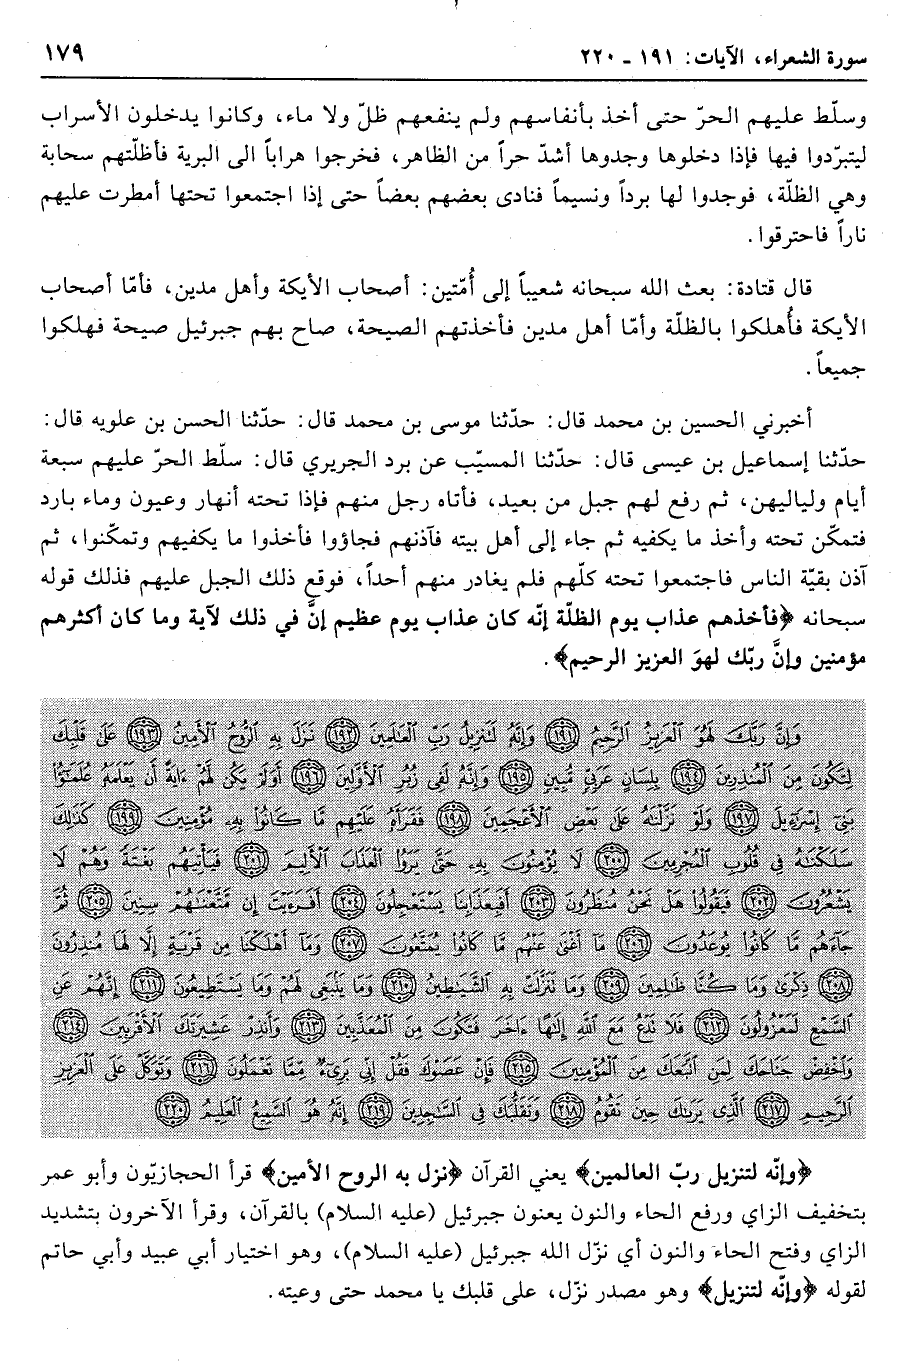 سورة الشعراء، الآيات: ١٩١ ـ ٢٢٠
١٧٩
وسلّط عليهم الحرّ حتى أخذ بأنفاسهم ولم ينفعهم ظلّ ولا ماء، وكانوا يدخلون الأسراب
ليتبرّدوا فيها فإذا دخلوها وجدوها أشدّ حراً من الظاهر، فخرجوا هراباً الى البرية فأظلّتهم سحابة
وهي الظلّة، فوجدوا لها برداً ونسيماً فنادى بعضهم بعضاً حتى إذا اجتمعوا تحتها أمطرت عليهم
ناراً فاحترقوا.
قال قتادة: بعث الله سبحانه شعيباً إلى أُمّتين: أصحاب الأيكة وأهل مدين، فأمّا أصحاب
الأيكة فأُهلكوا بالظلّة وأمّا أهل مدين فأخذتهم الصيحة، صاح بهم جبرئيل صيحة فهلكوا
جميعاً.
أخبرني الحسين بن محمد قال: حدّثنا موسى بن محمد قال: حدّثنا الحسن بن علويه قال:
حدّثنا إسماعيل بن عيسى قال: حدّثنا المسيّب عن برد الجريري قال: سلّط الحرّ عليهم سبعة
أيام ولياليهن، ثم رفع لهم جبل من بعيد، فأتاه رجل منهم فإذا تحته أنهار وعيون وماء بارد
فتمكّن تحته وأخذ ما يكفيه ثم جاء إلى أهل بيته فآذنهم فجاؤوا فأخذوا ما يكفيهم وتمكّنوا، ثم
آذن بقيّة الناس فاجتمعوا تحته كلّهم فلم يغادر منهم أحداً، فوقع ذلك الجبل عليهم فذلك قوله
سبحانه ﴿فأخذهم عذاب يوم الظلّة إنّه كان عذاب يوم عظيم إنَّ في ذلك لآية وما كان أكثرهم
مؤمنين وإنَّ ربّك لهوَ العزيز الرحيم﴾.
وَإِنَّ رَبَّكَ لَهُوَ الْعَزِيزُ الرَّحِيمُ ﴿١٩١﴾ وَإِنَّهُ لَتَنزِيلُ رَبِّ الْعَالَمِينَ ﴿١٩٢﴾ نَزَلَ بِهِ الرُّوحُ الْأَمِينُ ﴿١٩٣﴾ عَلَى قَلْبِكَ
لِتَكُونَ مِنَ الْمُنذِرِينَ ﴿١٩٤﴾ بِلِسَانٍ عَرَبِيٍّ مُّبِينٍ ﴿١٩٥﴾ وَإِنَّهُ لَفِي زُبُرِ الْأَوَّلِينَ ﴿١٩٦﴾ أَوَلَمْ يَكُن لَّهُمْ ءَايَةً أَن يَعْلَمَهُ عُلَمَٰٓؤُا
بَنِي إِسْرَٰٓءِيلَ ﴿١٩٧﴾ وَلَوْ نَزَّلْنَٰهُ عَلَى بَعْضِ الْأَعْجَمِينَ ﴿١٩٨﴾ فَقَرَأَهُ عَلَيْهِم مَّا كَانُوا بِهِ مُؤْمِنِينَ ﴿١٩٩﴾ كَذَٰلِكَ
سَلَكْنَٰهُ فِي قُلُوبِ الْمُجْرِمِينَ ﴿٢٠٠﴾ لَا يُؤْمِنُونَ بِهِ حَتَّى يَرَوُا الْعَذَابَ الْأَلِيمَ ﴿٢٠١﴾ فَيَأْتِيَهُم بَغْتَةً وَهُمْ لَا
يَشْعُرُونَ ﴿٢٠٢﴾ فَيَقُولُوا هَلْ نَحْنُ مُنظَرُونَ ﴿٢٠٣﴾ أَفَبِعَذَابِنَا يَسْتَعْجِلُونَ ﴿٢٠٤﴾ أَفَرَءَيْتَ إِن مَّتَّعْنَٰهُمْ سِنِينَ ﴿٢٠٥﴾ ثُمَّ
جَآءَهُم مَّا كَانُوا يُوعَدُونَ ﴿٢٠٦﴾ مَآ أَغْنَى عَنْهُم مَّا كَانُوا يُمَتَّعُونَ ﴿٢٠٧﴾ وَمَآ أَهْلَكْنَا مِن قَرْيَةٍ إِلَّا لَهَا مُنذِرُونَ
﴿٢٠٨﴾ ذِكْرَى وَمَا كُنَّا ظَٰلِمِينَ ﴿٢٠٩﴾ وَمَا تَنَزَّلَتْ بِهِ الشَّيَٰطِينُ ﴿٢١٠﴾ وَمَا يَنبَغِي لَهُمْ وَمَا يَسْتَطِيعُونَ ﴿٢١١﴾ إِنَّهُمْ عَنِ
السَّمْعِ لَمَعْزُولُونَ ﴿٢١٢﴾ فَلَا تَدْعُ مَعَ اللَّهِ إِلَٰهًا ءَاخَرَ فَتَكُونَ مِنَ الْمُعَذَّبِينَ ﴿٢١٣﴾ وَأَنذِرْ عَشِيرَتَكَ الْأَقْرَبِينَ ﴿٢١٤﴾
وَاخْفِضْ جَنَاحَكَ لِمَنِ اتَّبَعَكَ مِنَ الْمُؤْمِنِينَ ﴿٢١٥﴾ فَإِنْ عَصَوْكَ فَقُلْ إِنِّي بَرِيٓءٌ مِّمَّا تَعْمَلُونَ ﴿٢١٦﴾ وَتَوَكَّلْ عَلَى الْعَزِيزِ
الرَّحِيمِ ﴿٢١٧﴾ الَّذِي يَرَىٰكَ حِينَ تَقُومُ ﴿٢١٨﴾ وَتَقَلُّبَكَ فِي السَّٰجِدِينَ ﴿٢١٩﴾ إِنَّهُ هُوَ السَّمِيعُ الْعَلِيمُ ﴿٢٢٠﴾
﴿وإنّه لتنزيل ربّ العالمين﴾ يعني القرآن ﴿نزل به الروح الأمين﴾ قرأ الحجازيّون وأبو عمر
بتخفيف الزاي ورفع الحاء والنون يعنون جبرئيل (عليه السلام) بالقرآن، وقرأ الآخرون بتشديد
الزاي وفتح الحاء والنون أي نزّل الله جبرئيل (عليه السلام)، وهو اختيار أبي عبيد وأبي حاتم
لقوله ﴿وإنّه لتنزيل﴾ وهو مصدر نزّل، على قلبك يا محمد حتى وعيته.